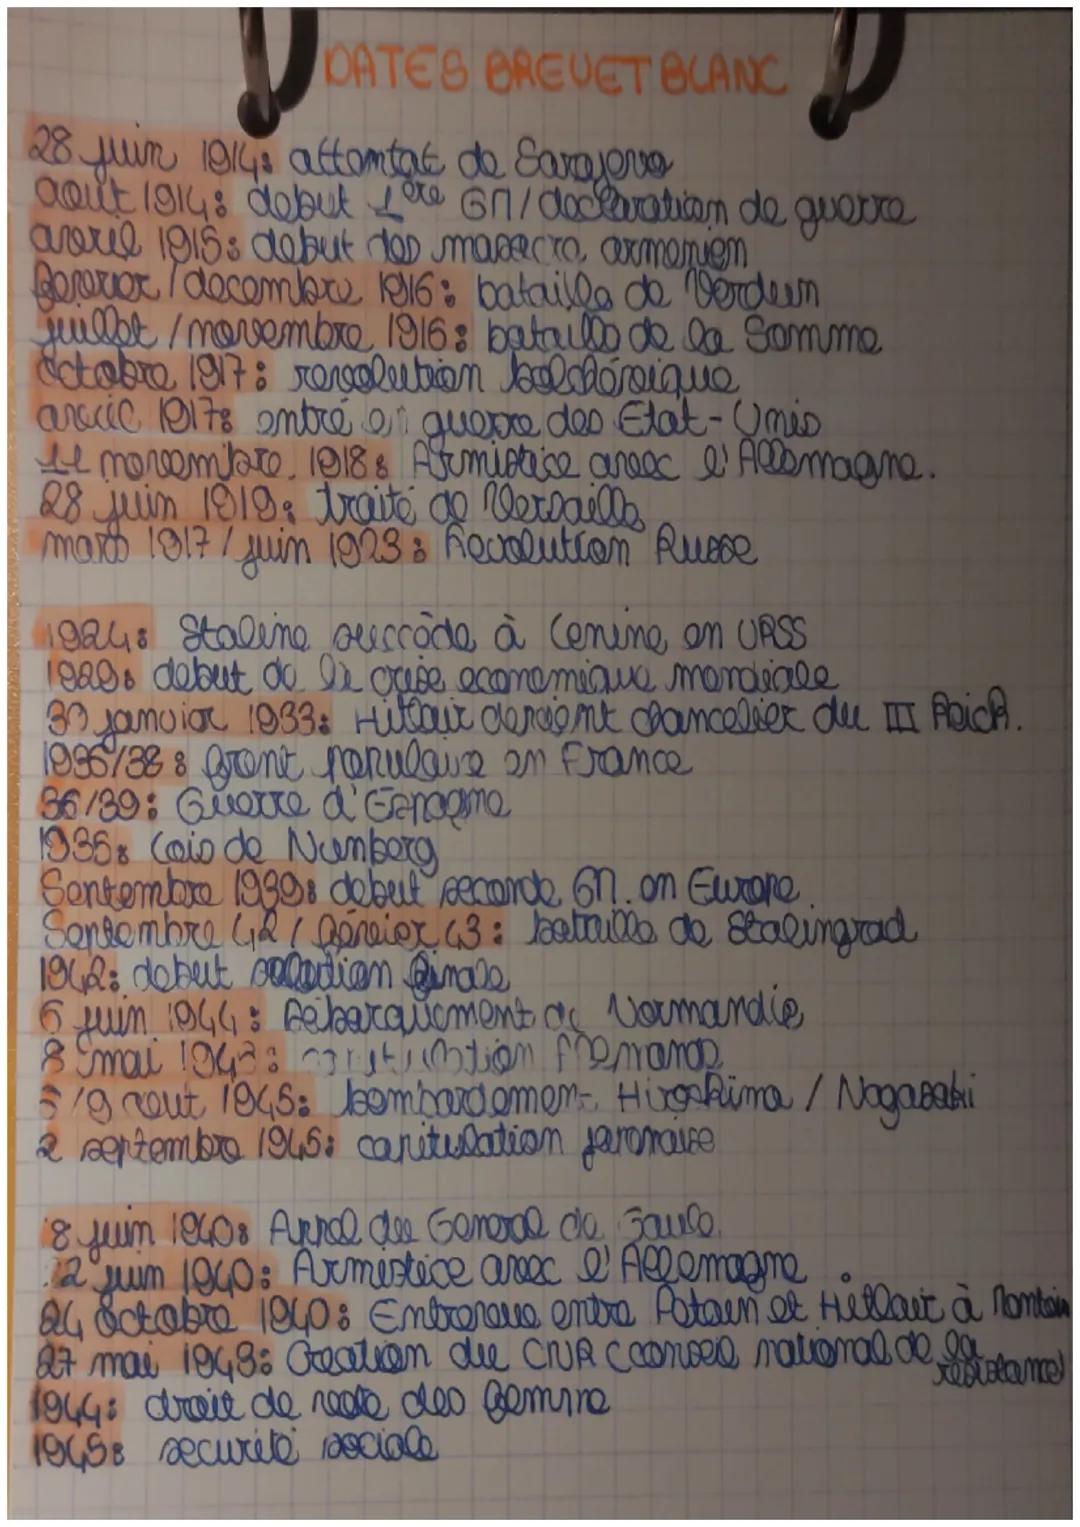 DATES BREVET BLANC
28 juin 1914: attentat de Sarajevo
aout 1914: debut 1ère GM/declaration de guerre
avril 1915: debut des massacre armenien
fevrier/decembre 1916: bataille de Verdun
juillet/novembre 1916: bataille de la Somme
Octobre 1917: revolution bolchévique
avril 1917: entré en guerre des Etat-Unis
11 novembre 1918: Armistice avec l'Allemagne.
28 juin 1919: traité de Versaille
mars 1917/juin 1923: Revolution Russe
1924: Staline succède à Lenine en URSS
1929: debut de la crise economique mondiale
30 janvier 1933: Hitlair devient chancelier du III Reich.
1936/38: front populaire en France
36/39: Guerre d'Espagne
1935: Lois de Nuremberg
Septembre 1939: debut seconde GM. en Europe
Septembre 42/février 43: bataille de Stalingrad
1942: debut solution finale
6 juin 1944: Debarquement de Normandie
8 mai
/9 aout 1945: bombardement Hiroshima / Nagasaki
2 septembre 1945: capitulation japonaise
8 juin 1940: Appel du General de Gaule.
2 juin 1940: Armistice avec l'Allemagne
24 octobre 1940: Entrevue entre Petain et Hitlair à Montoire
27 mai 1943: Creation du CNR (conseil national de la resistance)
1944: droit de vote des femme
1945: securité sociale